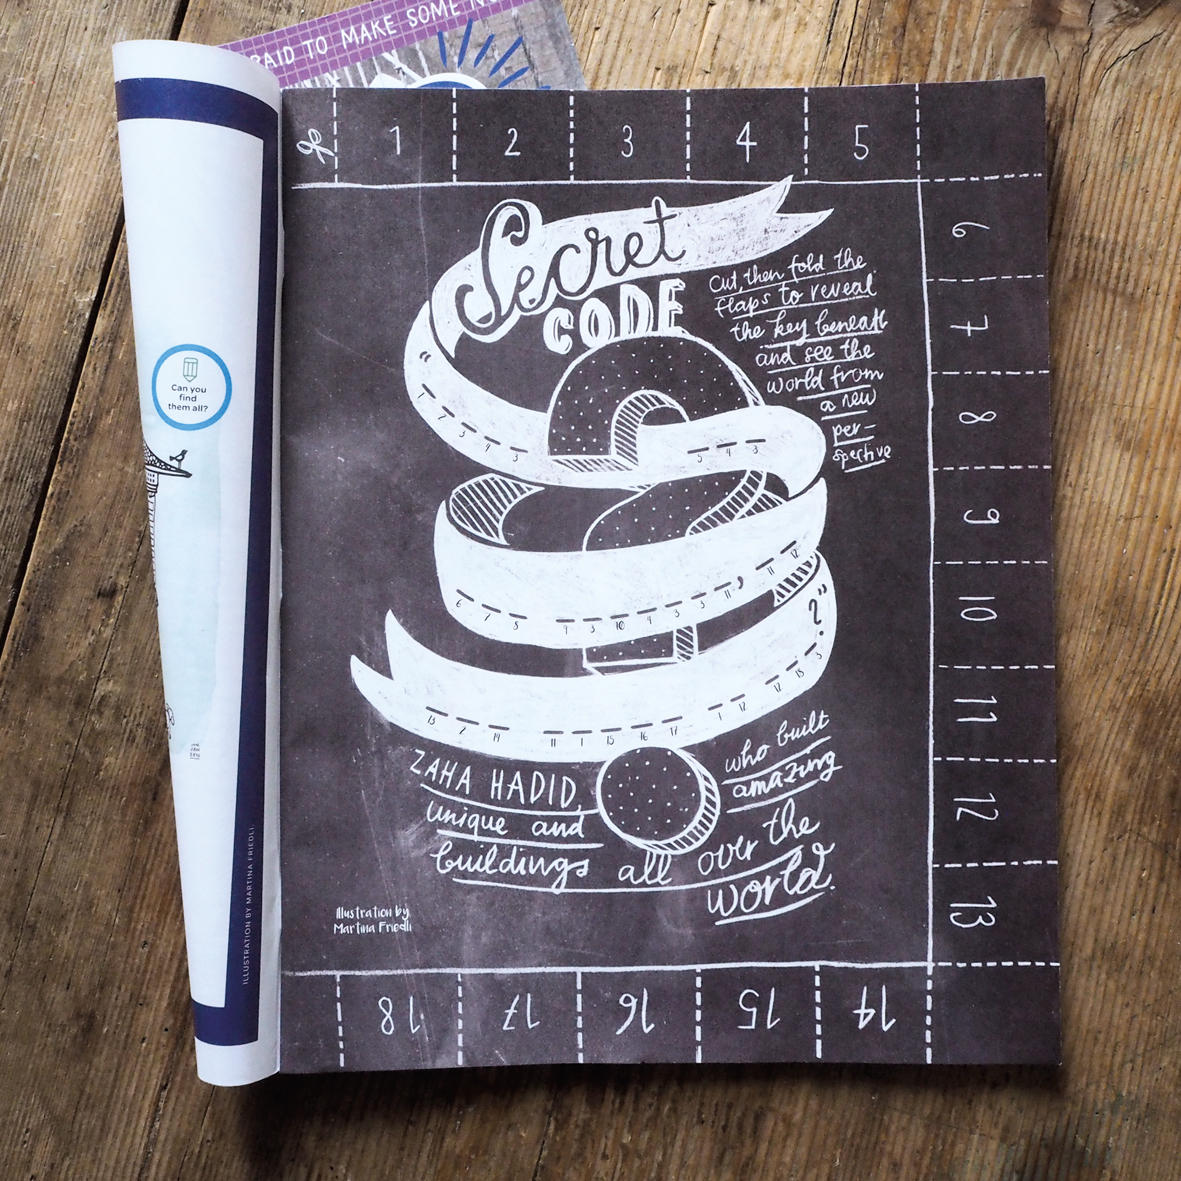 RAID TO MAKE SOME NO
1 2 3 4 5
6
7
8
9
10
11
12
13
14
15
16
17
18
Secret
CODE
Cut, then fold the
flaps to reveal
the key beneath
and see the
world from
a new
per-
spective
"
5 4 3
6 7 5 9 3 10 4 3 3 11 ' 11 12
13 7 14 11 1 15 16 17 1 12 17 13 5 ?"
ZAHA HADID,
unique and
buildings all over the
world.
who built
amazing
Illustration by
Martina Friedli
Can you
find
them all?
ILLUSTRATION BY MARTINA FRIEDLI.